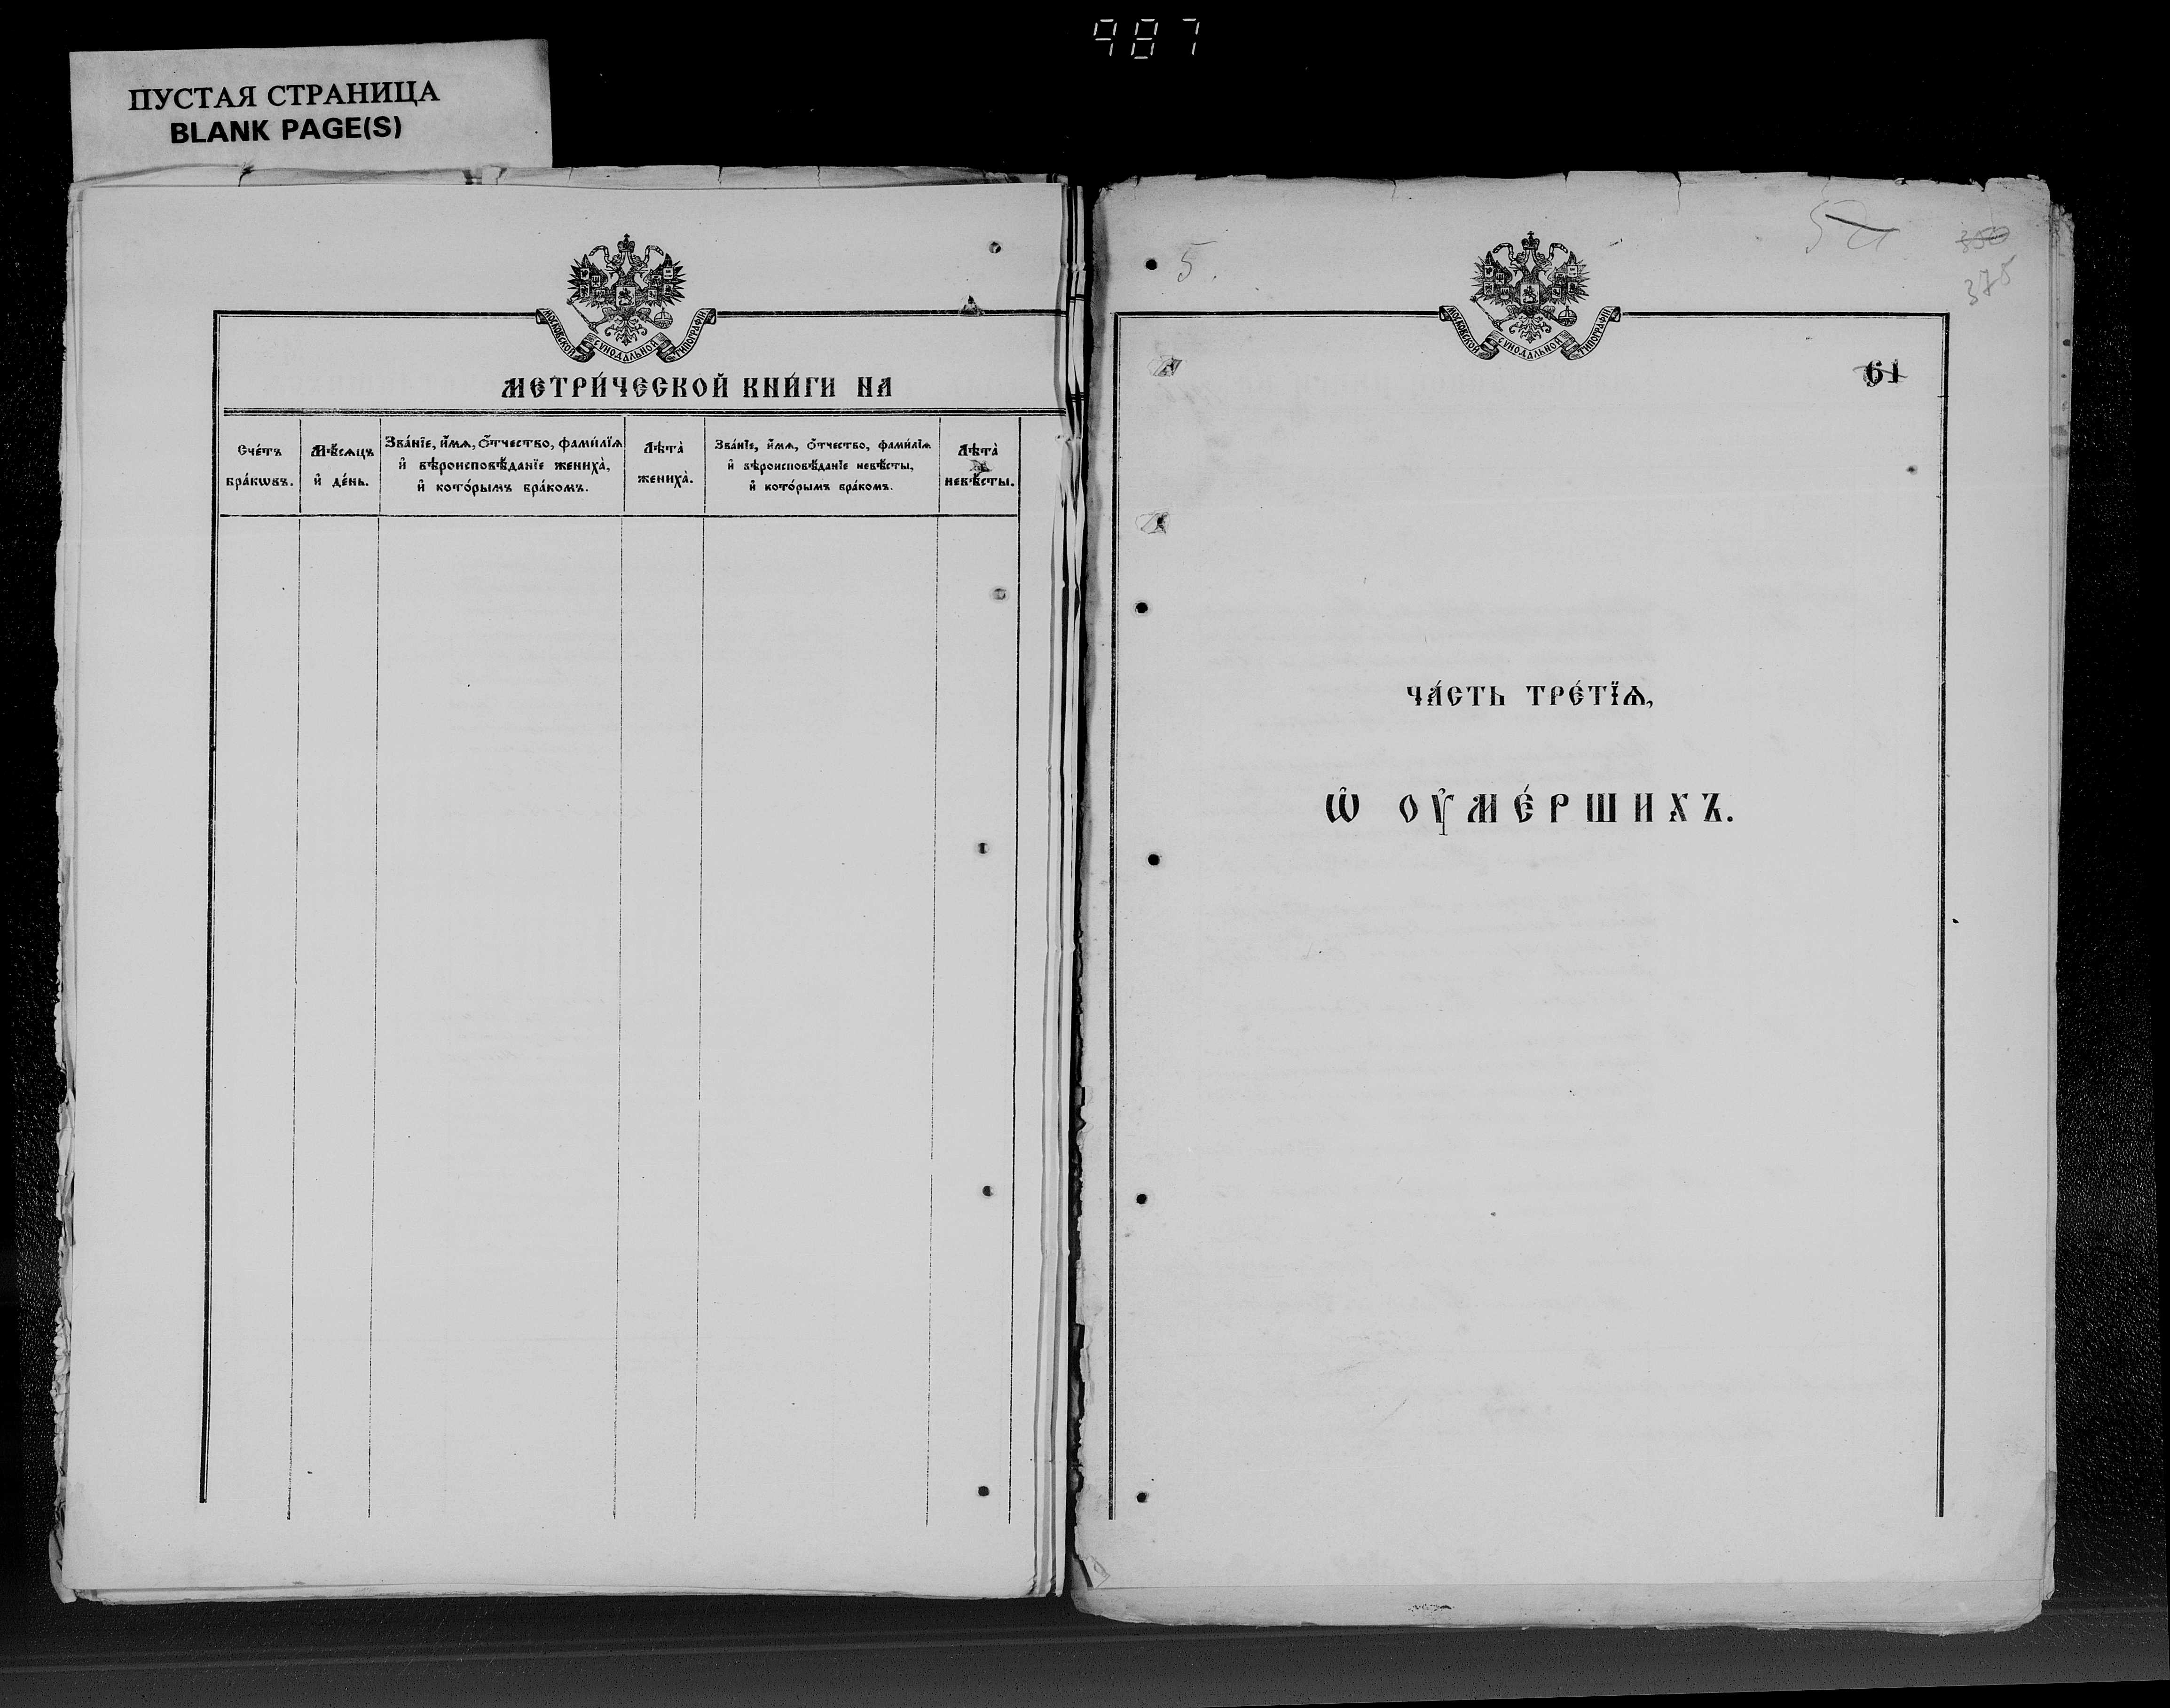 987
ПУСТАЯ СТРАНИЦА
BLANK PAGE(S)
МОСКОВСКОЙ СѴНОДАЛЬНОЙ ТИПОГРАФІИ
МЕТРИ́ЧЕСКОЙ КНИ́ГИ НА
Сче́тъ бра́кѡвъ.
Мѣ́сѧцъ и҆ де́нь.
Зва́нїе, и҆́мѧ, ѻ҆́тчество, фами́лїѧ
и҆ вѣроисповѣ́данїе жениха̀,
и҆ кото́рымъ бра́комъ.
Лѣта̀ жениха̀.
Зва́нїе, и҆́мѧ, ѻ҆́тчество, фами́лїѧ
и҆ вѣроисповѣ́данїе невѣ́сты,
и҆ кото́рымъ бра́комъ.
Лѣта̀ невѣ́сты.
5.
350
375
МОСКОВСКОЙ СѴНОДАЛЬНОЙ ТИПОГРАФІИ
61
ЧА́СТЬ ТРЕ́ТЇѦ,
Ѡ҆ ОУ҆МЕ́РШИХЪ.